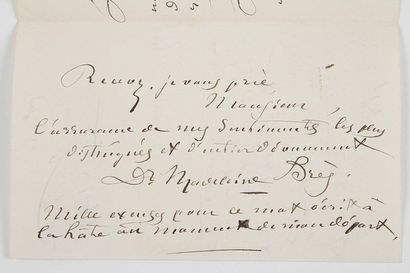 Recevez, je vous prie
Monsieur,
l'assurance de mes sentiments les plus
distingués et d'entier dévouement
Dr Madeleine Brès.
Mille excuses pour ce mot écrit à
la hâte au moment de mon départ.